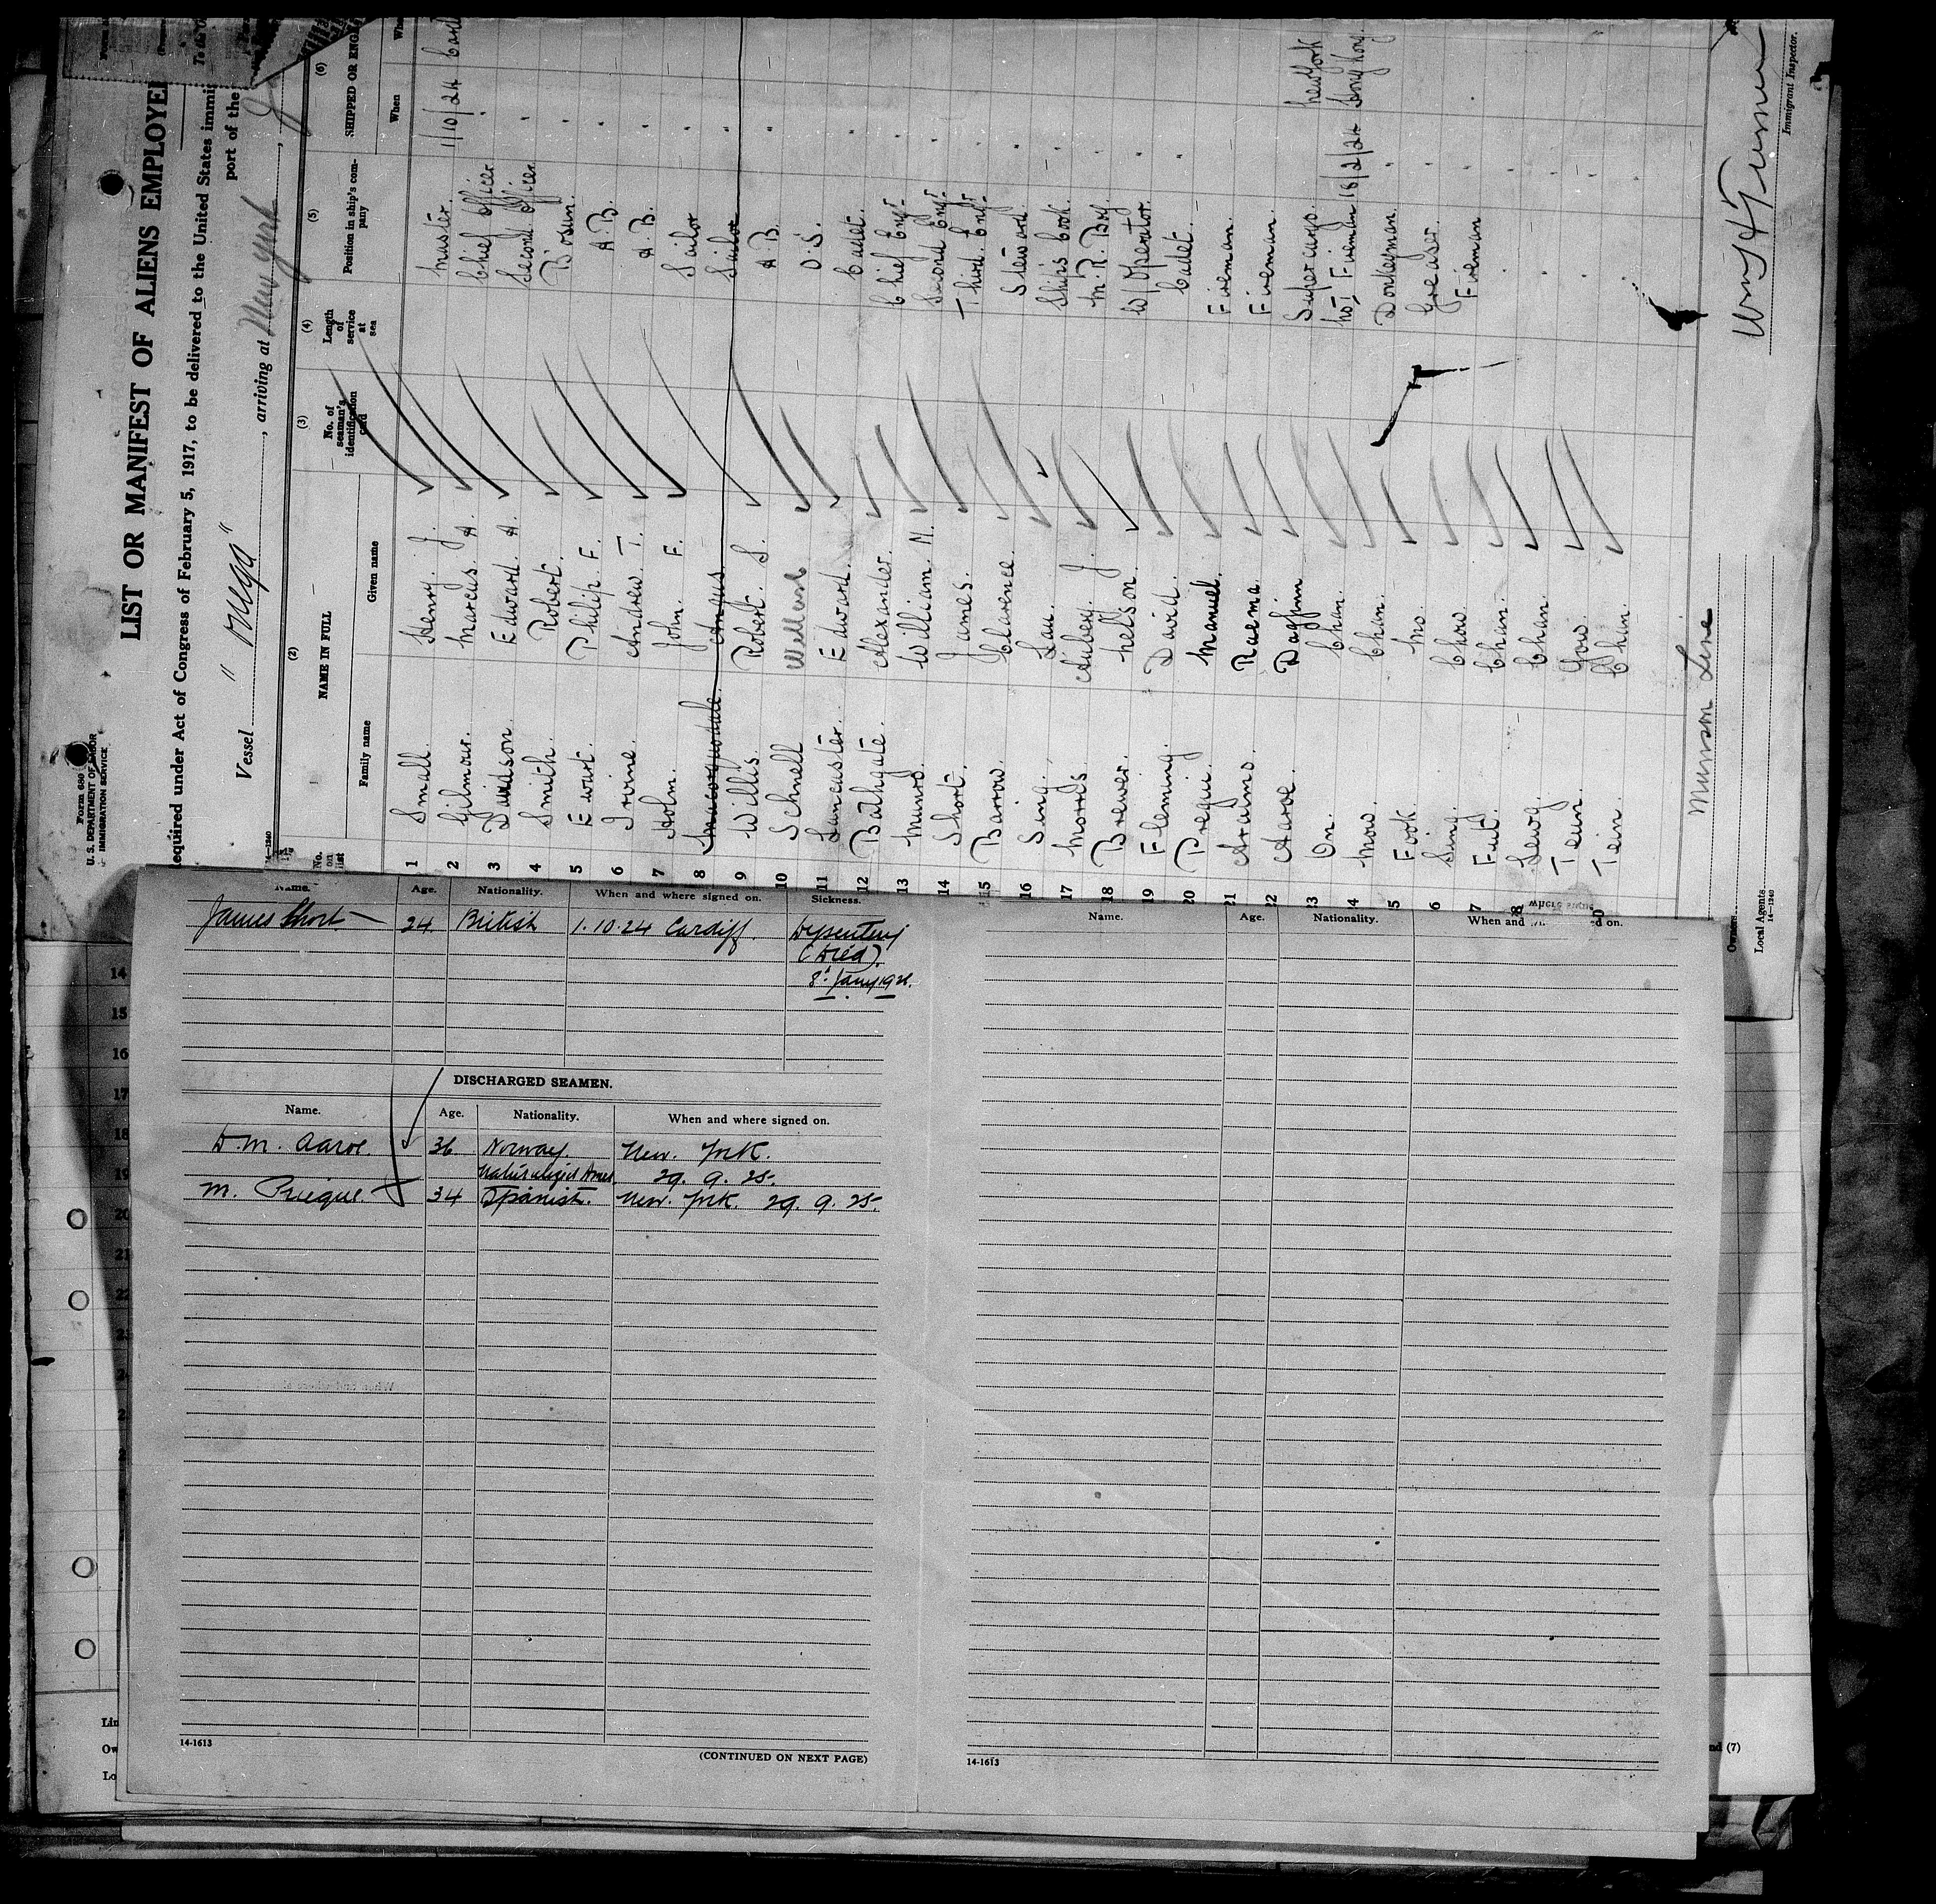 Form 680
U. S. DEPARTMENT OF LABOR
IMMIGRATION SERVICE
LIST OR MANIFEST OF ALIENS EMPLOYED
Required under Act of Congress of February 5, 1917, to be delivered to the United States immi
port of the
Vessel " " , arriving at New York
14—1240
(2) (3) (4) (5) (6)
No. on list
NAME IN FULL
Family name Given name
No. of seaman's identification card
Length of service at sea
Position in ship's company
SHIPPED OR ENG
When
1 Small. Henry. J. Master. 1/10/24
2 Gilmour. Marcus A. Chief Officer "
3 Davidson. Edward. A. Second Officer "
4 Smith. Robert. B'osun. "
5 Ewart. Philip. F. A. B. "
6 Irvine. Andrew. T. A. B. "
7 Holm. John. F. Sailor "
8 Macorquodale. Angus. Sailor "
9 Willis. Robert. S. A. B. "
10 Schnell O. S.
11 Lancaster. Edward. Cadet. "
12 Bathgate. Alexander. Chief Engr. "
13 Munro. William. N. Second Engr. "
14 Short. James. Third. Engr. "
15 Barrow. Clarence. Steward. "
16 Sing. Lau. Ship's Cook. "
17 Morris Aubery. J. M. R. Boy. "
18 Brewer. Nelson. W/Operator. "
19 Fleming. David. Cadet. "
20 Manuel. Fireman.
21 Raema. Fireman.
22 Aaroe. Dagfinn Supercargo. New York
23 On. Chan. No 1 Fireman 18/2/24 Hong Kong.
24 Mow. Chan. Donkeyman. "
25 Fook. Mo. Greaser. "
26 Sing. Chow. Fireman "
27 Fut. Chan. "
28 Chan. "
29 Tein. "
30 Tein. Chan.
Munson Line
Owners
Local Agents
14—1240
Immigrant Inspector.
Name. Age. Nationality. When and where signed on. Sickness.
James Short 24. British 1.10.24 Cardiff. Dysentery
(Died).
DISCHARGED SEAMEN.
Name. Age. Nationality. When and where signed on.
D. M. Aaroe. 36 Norway. New. York.
Naturalized Amer. 29. 9. 25.
M. 34 Spanish. New. York. 29. 9. 25.
14-1613
(CONTINUED ON NEXT PAGE)
Name. Age. Nationality. When and
d on.
14-1613
14
15
16
17
18
19
20
21
22
nd (7)